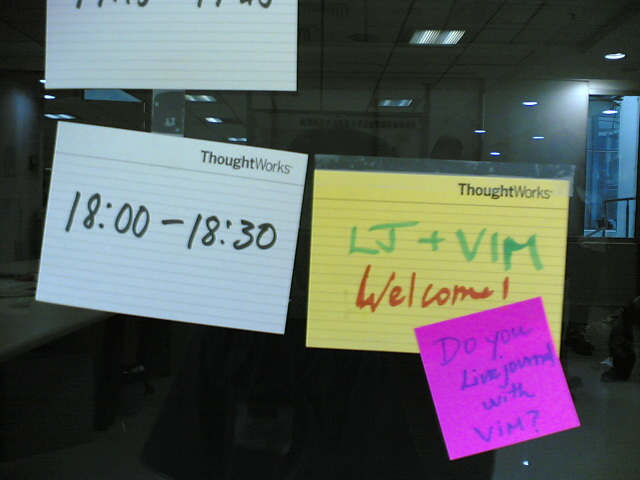 ThoughtWorks
18:00 - 18:30
ThoughtWorks
LJ + VIM
Welcome!
Do you
Livejournal
with
ViM?